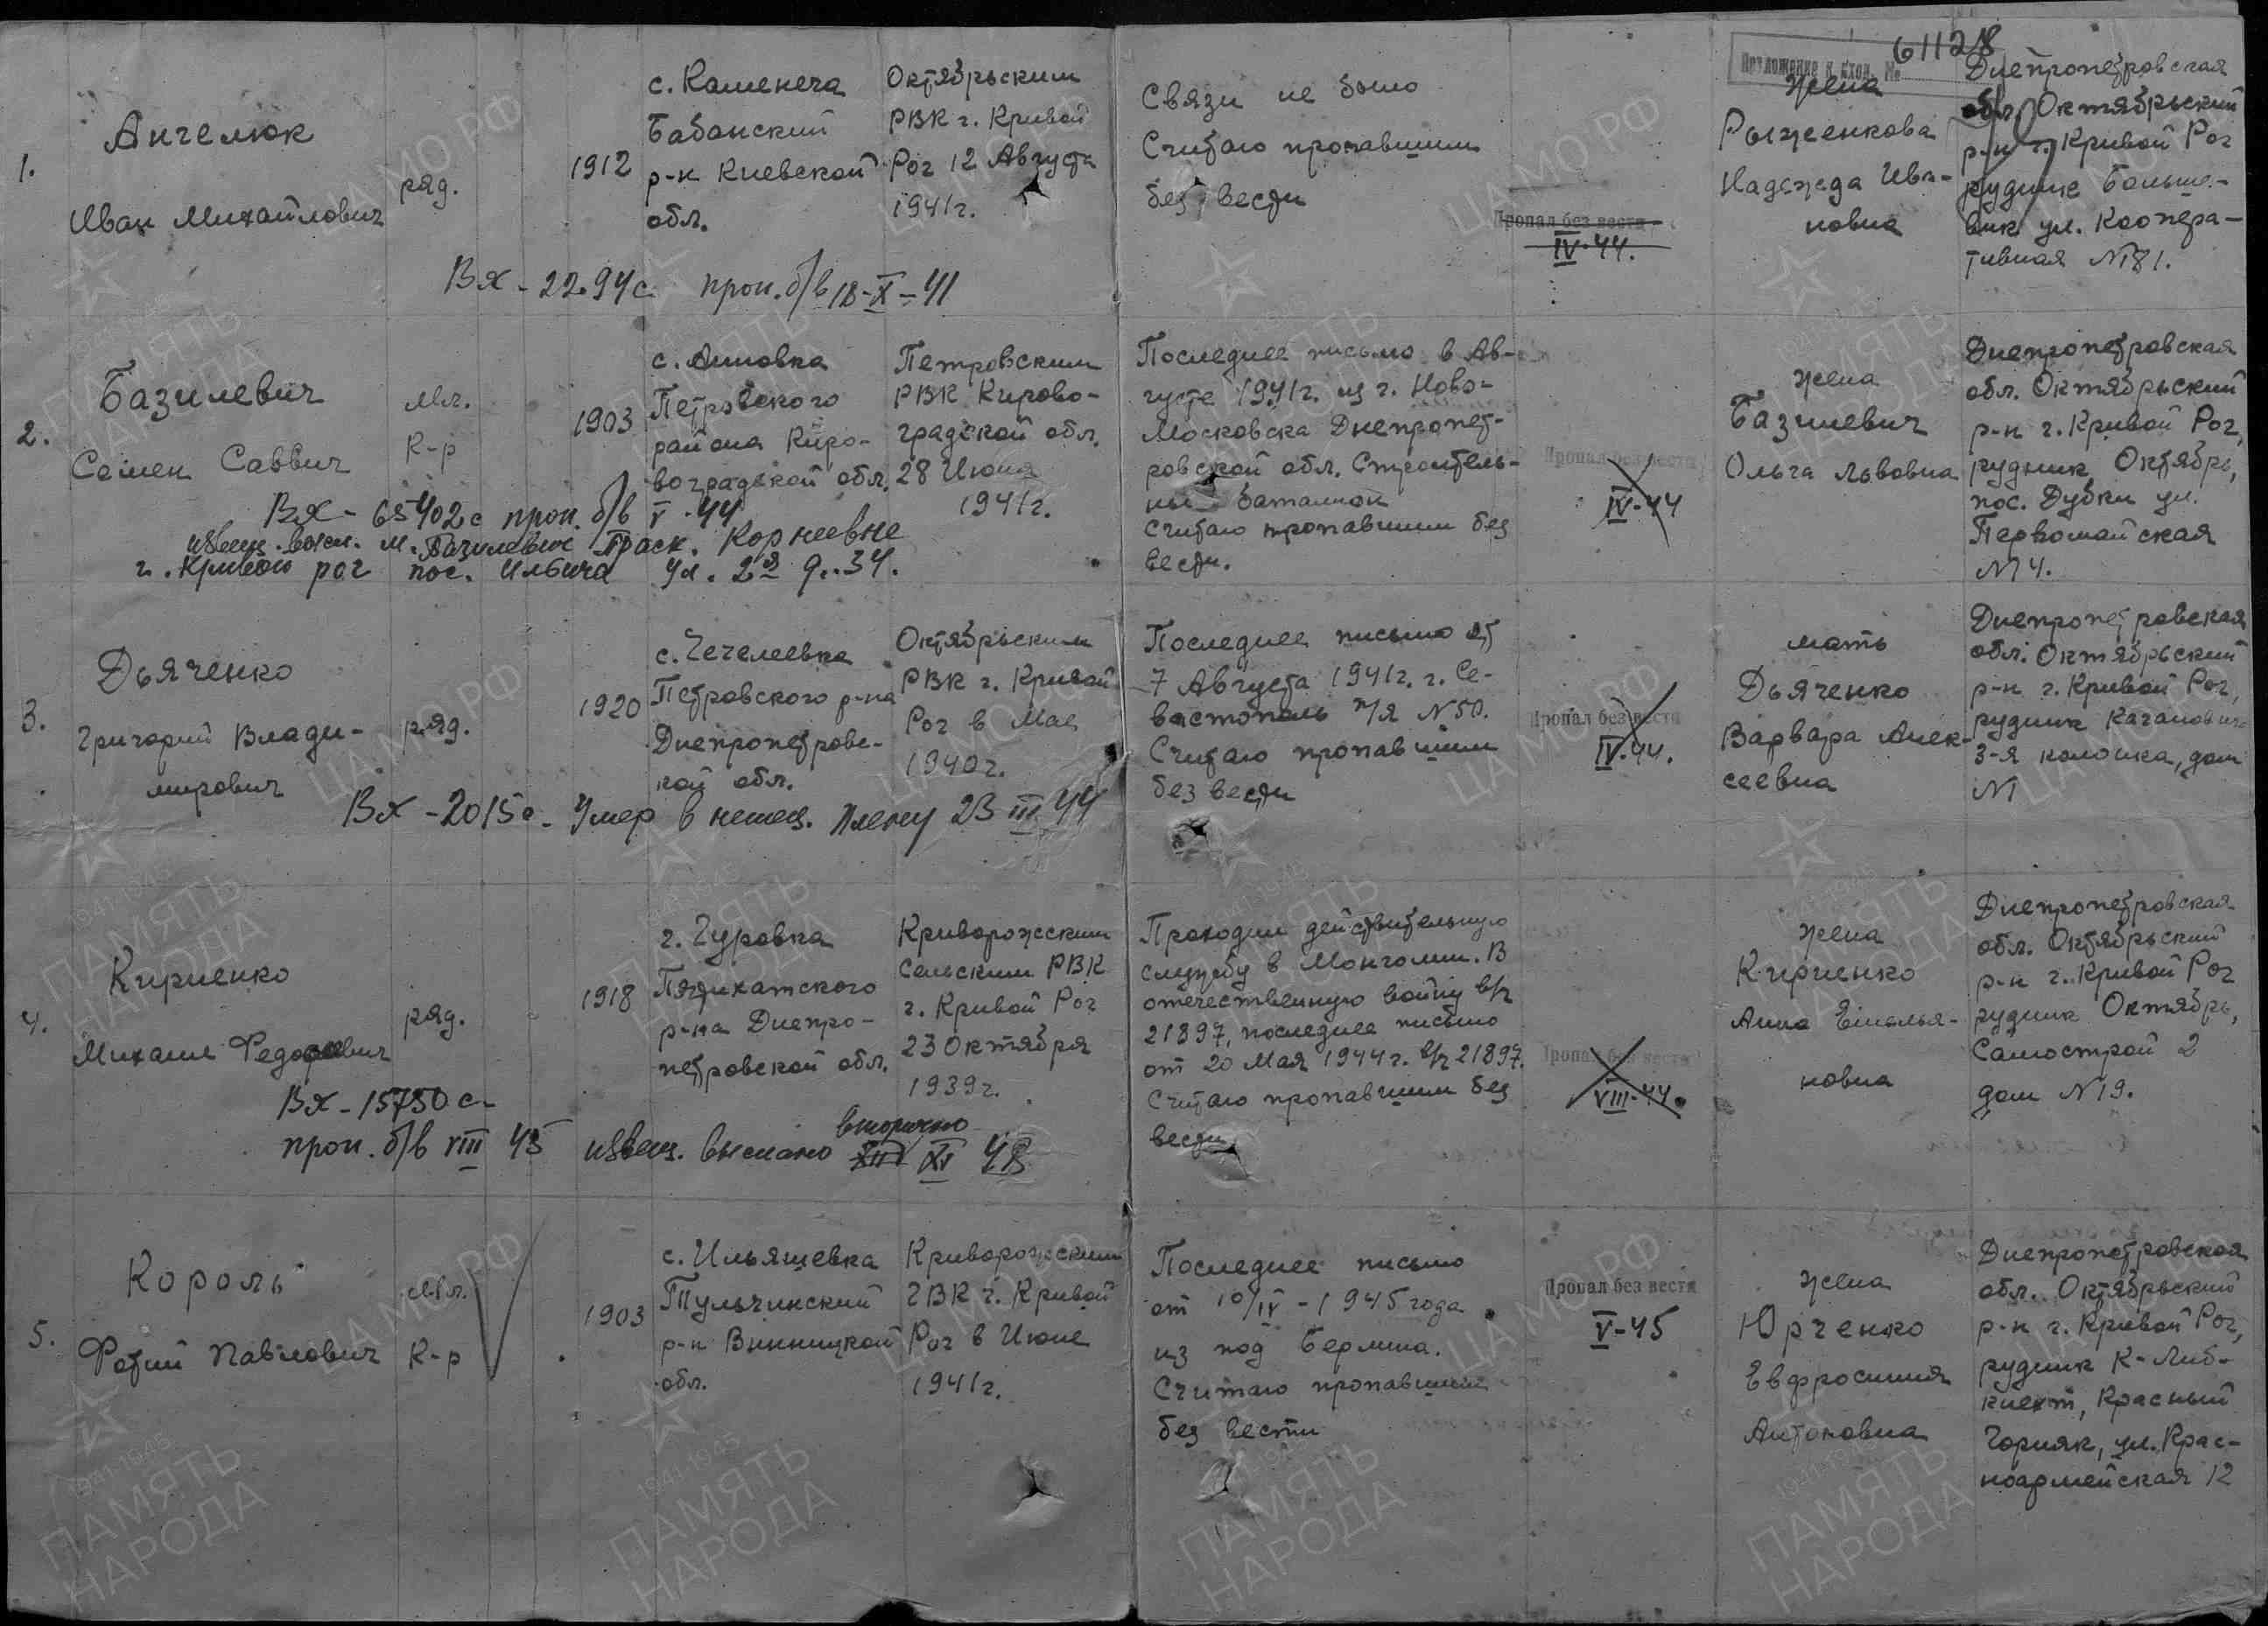 61128
Приложение к вход. №
1.
Ангелюк
Иван Михайлович
ряд.
1912
с. Каменеча
Бабанский
р-н Киевской
обл.
Октябрьским
РВК г. Кривой
Рог 12 Августа
1941г.
Связи не было
Считаю пропавшим
без вести
Пропал без вести
IV-44.
жена
Рыженкова
Надежда Ива-
новна
Днепропетровская
обл. Октябрьский
р-н г. Кривой Рог
рудник Больше-
вик ул. Коопера-
тивная №81.
Вх - 22.94с проп. б/в 18-X-41
2.
Базилевич
Семен Саввич
мл.
К-р
1903
с. Анновка
Петровского
района Киро-
воградской обл.
Петровским
РВК Кирово-
градской обл.
28 Июня
1941г.
Последнее письмо в Ав-
густе 1941г. из г. Ново-
Московска Днепропет-
ровской обл. Строитель-
ный батальон
Считаю пропавшим без
вести.
Пропал без вести
IV-44
жена
Базилевич
Ольга Львовна
Днепропетровская
обл. Октябрьский
р-н г. Кривой Рог,
рудник Октябрь,
пос. Дубки ул.
Первомайская
№4.
Вх - 65402с проп. б/в V-44
извещ. высл. м. Базилевич Праск. Корнеевне
г. Кривой рог пос. Ильича ул. 2я д. 34.
3.
Дьяченко
Григорий Влади-
мирович
ряд.
1920
с. Чечелеевка
Петровского р-на
Днепропетровс-
кой обл.
Октябрьским
РВК г. Кривой
Рог в Мае
1940г.
Последнее письмо от
7 Августа 1941г. г. Се-
вастополь п/я №50.
Считаю пропавшим
без вести
Пропал без вести
IV-44.
мать
Дьяченко
Варвара Алек-
сеевна
Днепропетровская
обл. Октябрьский
р-н г. Кривой Рог,
рудник Кагановича
3-я колонка, дом
№1
Вх - 2015с - Умер в немец. плену 23 III 44
4.
Кириенко
Михаил Федорович
ряд.
1918
г. Гуровка
Пятихатского
р-на Днепро-
петровской обл.
Криворожским
сельским РВК
г. Кривой Рог
23 Октября
1939г.
Проходил действительную
службу в Монголии. В
отечественную войну в/ч
21897, последнее письмо
от 20 Мая 1944г. в/ч 21897.
Считаю пропавшим без
вести
Пропал без вести
VIII-44.
жена
Кириенко
Анна Емелья-
новна
Днепропетровская
обл. Октябрьский
р-н г. Кривой Рог
рудник Октябрь,
Самострой 2
дом №19.
Вх - 15750с -
вторично
проп. б/в VIII 45 извещ. выслано XII XI 48
5.
Король
Фотий Павлович
мл.
К-р
1903
с. Ильяшевка
Тульчинский
р-н Винницкой
обл.
Криворожским
ГВК г. Кривой
Рог в Июне
1941г.
Последнее письмо
от 10/IV-1945 года
из под Берлина.
Считаю пропавшим
без вести
Пропал без вести
V-45
жена
Юрченко
Евфросиния
Антоновна
Днепропетровская
обл. Октябрьский
р-н г. Кривой Рог,
рудник К-Либ-
кнехт, Красный
Горняк, ул. Крас-
ноармейская 12
1941-1945
ПАМЯТЬ
НАРОДА
ЦА МО РФ